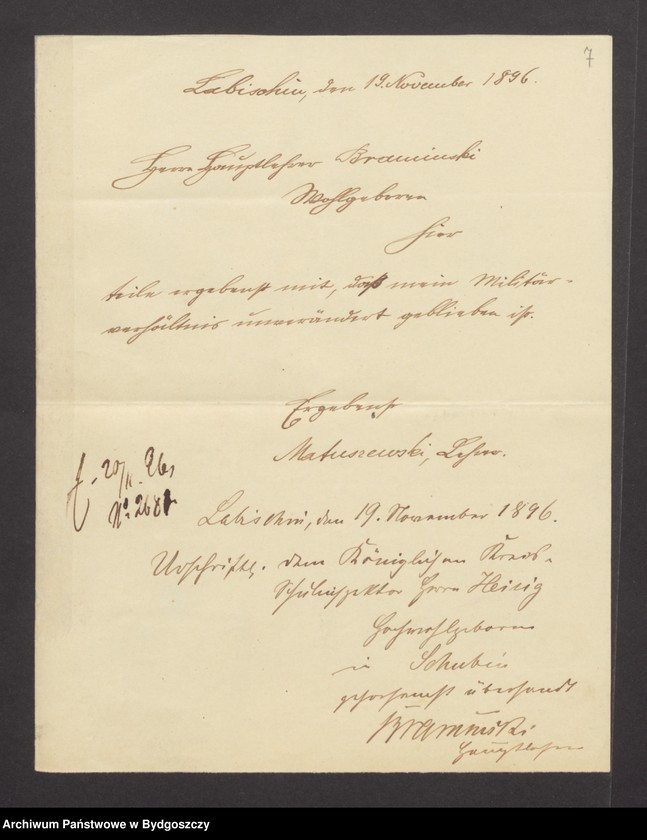 7
Labischin, den 19. November 1896.
Herrn Hauptlehrer Braminski
Wohlgeboren
hier
teile ergebenst mit, daß mein Militär-
verhältnis unverändert geblieben ist.
Ergebenst
Matuszewski, Lehrer.
20/11. 96
No 268
Labischin, den 19. November 1896.
Urschriftl. dem Königlichen Kreis-
Schulinspektor Herrn Heisig
Hochwohlgeboren
in Schubin
gehorsamst übersandt
Braminski
Hauptlehrer
Archiwum Państwowe w Bydgoszczy